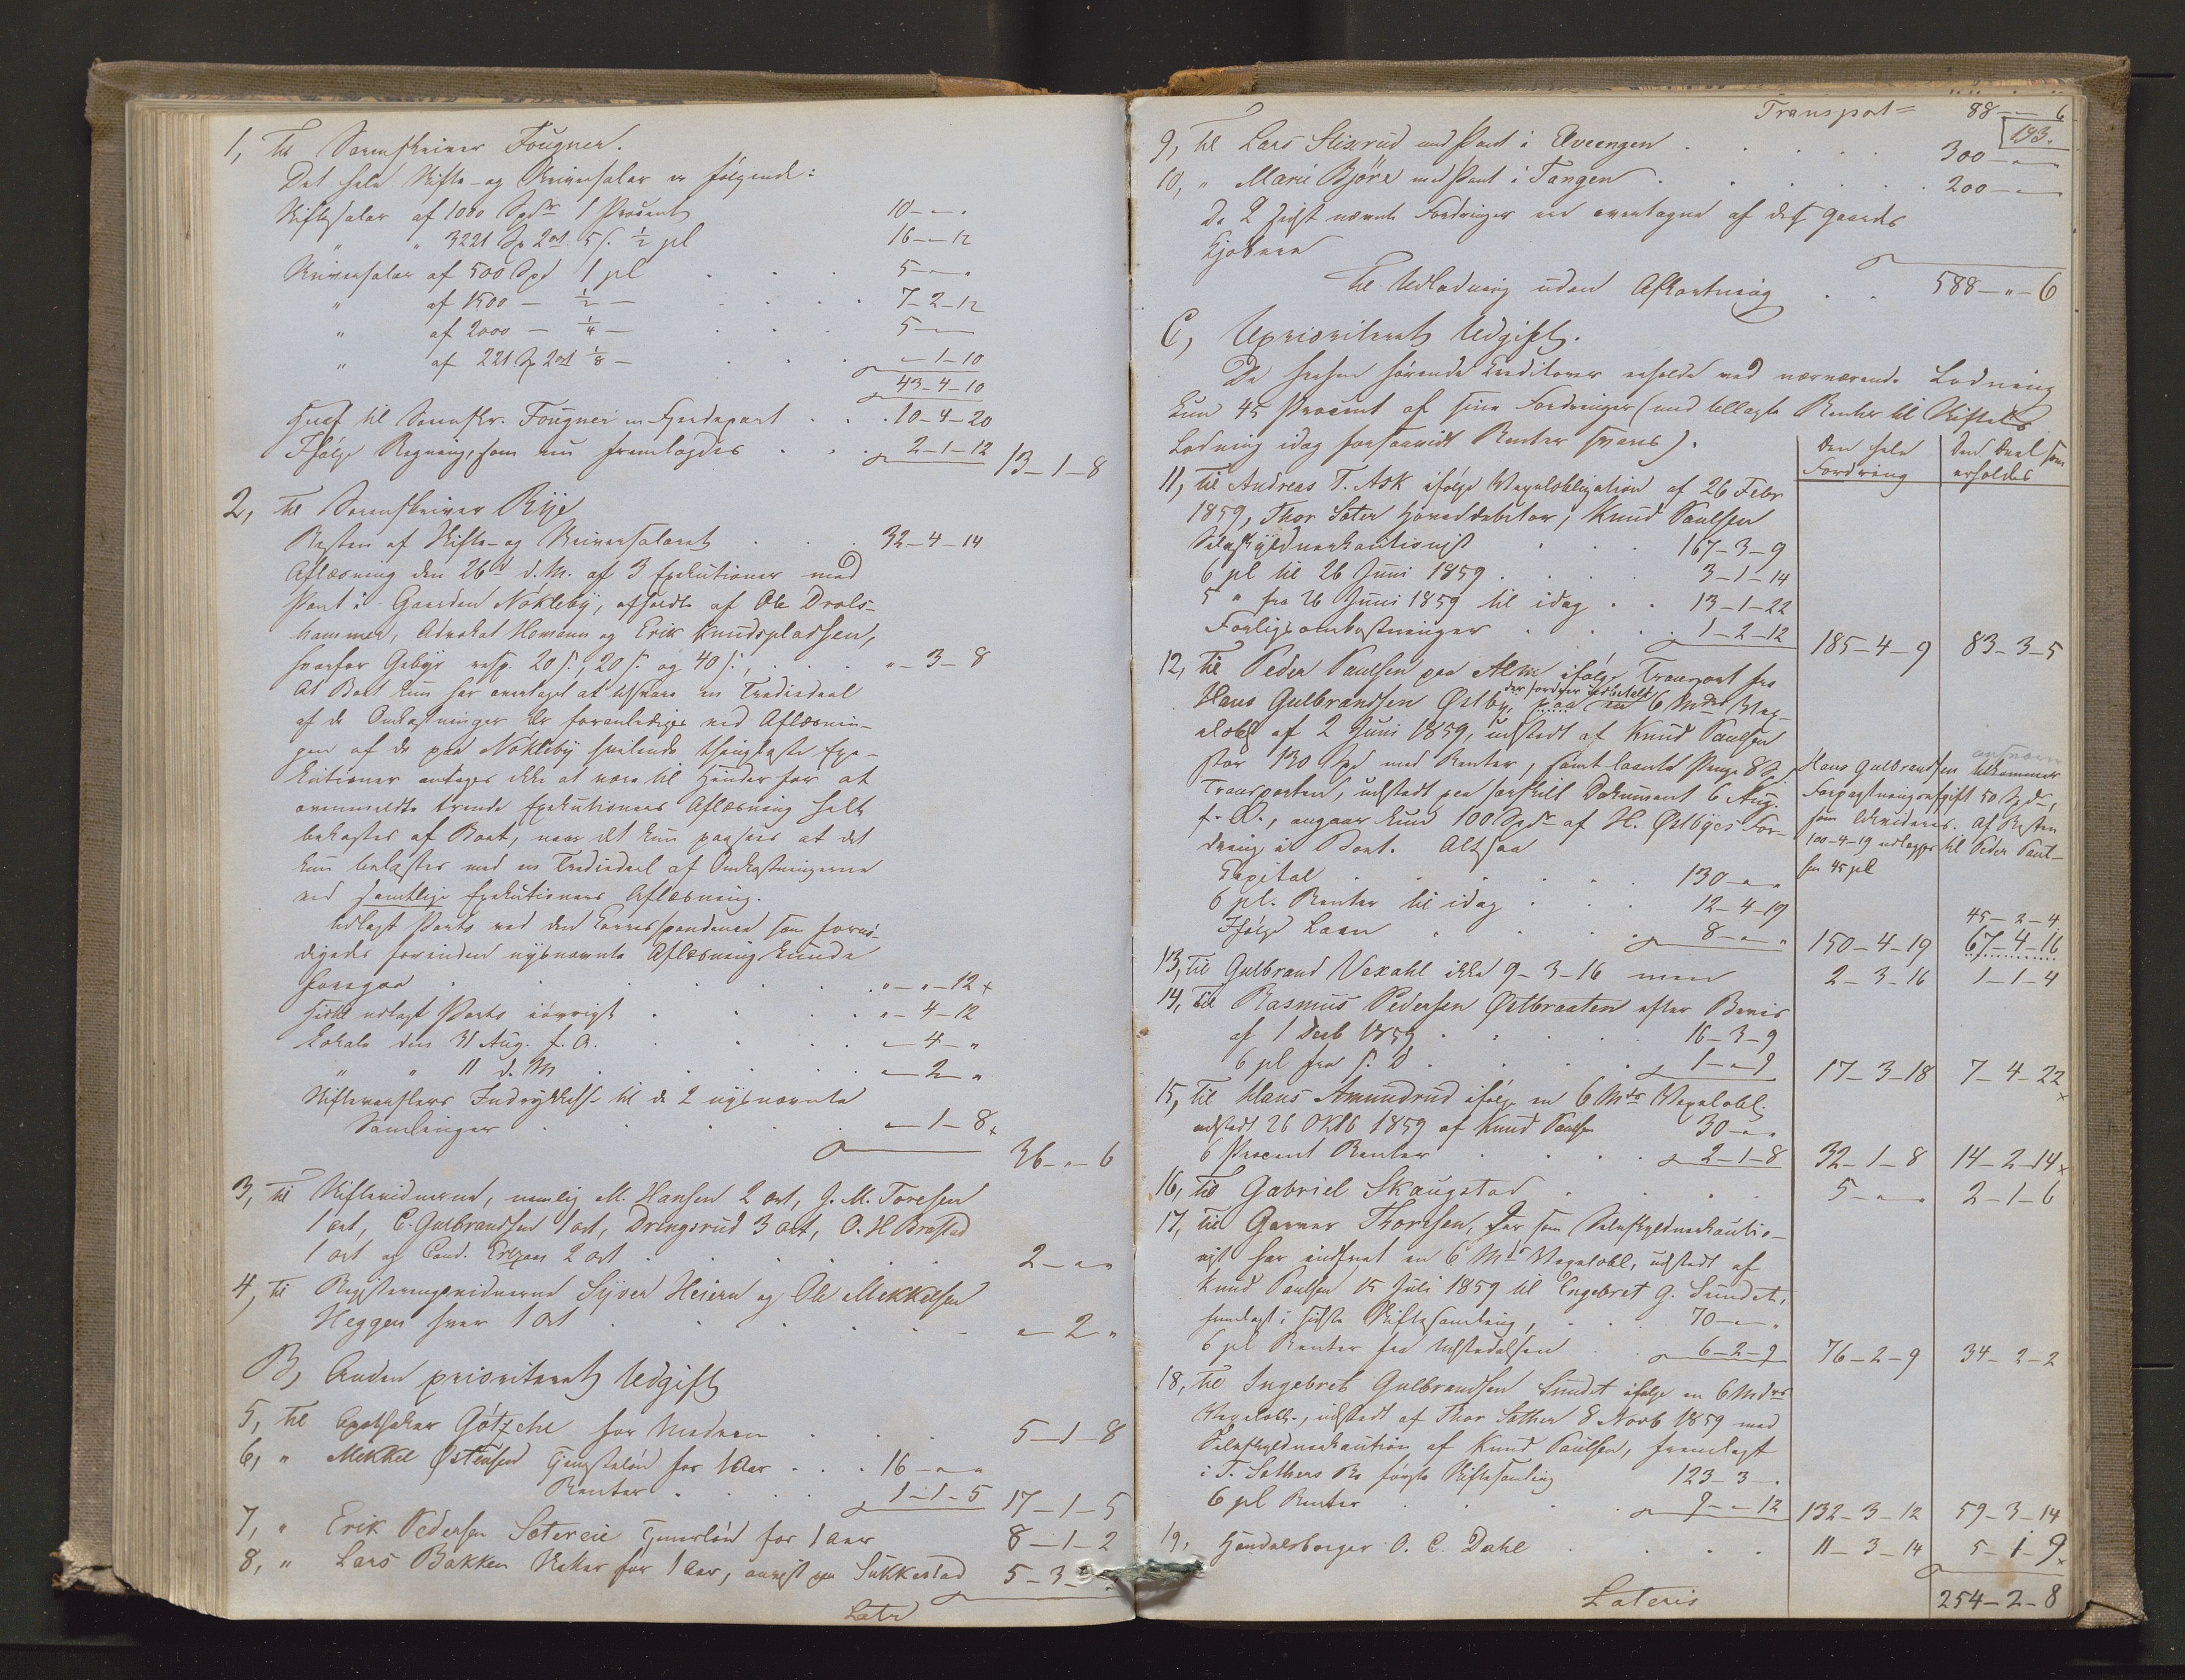 1, Til Sorenskriver Fougner.
Det hele Skifte- og Skriversalær er følgende:
Skiftesalær af 1000 Spdr 1 Procent 10 - " - "
" " 3221 Sp 2 ort 5 s. ½ pCt 16 - " - 12
Skriversalær af 500 Spd 1 pCt . . . 5 - " - "
" af 1500 — ½ — . . . . 7 - 2 - 12
" af 2000 — ¼ — . . . 5 - " - "
" af 221 Sp 2 ort ⅛ — . . . " - 1 - 10
43 - 4 - 10
Heraf til Sorenskr. Fougner en Fjerdepart . . . 10 - 4 - 20
Ifølge Regning, som nu fremlagdes . . . 2 - 1 - 12 13 - 1 - 8
2, Til Sorenskriver Rye
Resten af Skifte- og Skriversalæret . . . 32 - 4 - 14
Aflæsning den 26de d. M. af 3 Exekutioner med
Pant i Gaarden Nökleby, afholdte af Ole Drols-
hammer, Advokat Homann og Erik Knudsplassen,
hvorfor Gebyr resp. 20 s., 20 s. og 40 s., . . . " - 3 - 8
At Boet kun har overtaget at udrede en Trediedeel
af de Omkostninger der foranlediges ved Aflæsnin-
gen af de paa Nökleby hvilende thinglæste Exe-
kutioner antages ikke at være til Hinder for at
ovenmeldte trende Exekutioners Aflæsning heelt
bekostes af Boet, naar det kun paasees at det
kun belastes med en Trediedeel af Omkostningerne
ved samtlige Exekutioners Aflæsning.
Udlagt Porto ved den Correspondence som fornö-
digedes forinden nysnævnte Aflæsning kunde
foregaa . . . . . . " - " - 12 x
Hidtil udlagt Porto iøvrigt . . . . " - 4 - 12
Lokale den 31 Aug. f. A. . . . . " - 4 - "
" " 11 d. M. . . . . " - 2 - "
Skifterettens Indrykkelse til de 2 nysnævnte
Samlinger . . . . . " - 1 - 8 x
36 - " - 6
3, Til Skiftevidnerne, nemlig M. Hansen 2 ort, J. M. Toresen
1 ort, C. Gulbrandsen 1 ort, Dringsrud 3 ort, O. H. Brostad
1 ort og Cand. Erlzen 2 ort . . . . . 2 - " - "
4, Til Registreringsvidnerne Syver Heiern og Ole Mikkelsen
Heggen hver 1 ort . . . . . . " - 2 - "
B, Anden prioriteret Udgift
5, Til Apotheker Götzche for Medicin . . . . 5 - 1 - 8
6, " Mikkel Østensen Tjenesteløn for 1 Aar . . . 16 - " - "
Renter . . . . 1 - 1 - 5 17 - 1 - 5
7, " Erik Pedersen Sætereie Tjenerløn for 1 Aar 8 - 1 - 2
8, " Lars Bakken Skatter for 1 Aar, anvist paa Sukkestad 5 - 3 -
Latr
Transport = 88 - " - 6
193.
9, Til Lars Slisrud med Pant i Elveengen . . . . . 300 - " - "
10, " Marie Björe med Pant i Tangen . . . . . 200 - " - "
De 2 sidst nævnte Fordringer ere overtagne af dets Gaards
Kjöbere
Til Udlodning uden Afkortning . . 588 - " - 6
C, Uprioriteret Udgift.
De herhen hørende Creditorer erholde ved nærværende Lodning
kun 45 Procent af sine Fordringer (med tillagte Renter til Skiftets
Lodning idag forsaavidt Renter svares).
Den hele Fordring
Den Deel som erholdes
11, Til Andreas T. Ask ifølge Vexelobligation af 26 Febr
1859, Thor Sæter Hoveddebitor, Knud Paulsen
Selvskyldnerkautionist . . . 167 - 3 - 9
6 pCt til 26 Juni 1859 . . . 3 - 1 - 14
5 " fra 26 Juni 1859 til idag . . 13 - 1 - 22
Forligsomkostninger . . . 1 - 2 - 12 185 - 4 - 9 83 - 3 - 5
12, Til Peder Paulsen paa Alm ifølge Transport fra
Hans Gulbrandsen Østby, der fordrer udbetalt paa en 6 Mdrs Vex-
elobl af 2 Juni 1859, udstedt af Knud Paulsen
stor 130 Spd med Renter, samt laante Penge 8 Sp.
Transporten, udstedt paa særskilt Dokument 6 Aug.
f. A., angaar kun 100 Spdr af H. Østbyes For-
dring i Boet. Altsaa
Hans Gulbrandsen tilkommer
Forpagtningsafgift 50 Spdr,
som likvideres. Af Resten
100 - 4 - 19 udlægges til Peder Paul-
sen 45 pCt
Capital . . . . . . 130 - " - "
6 pCt. Renter til idag . . . 12 - 4 - 19 45 - 2 - 4
Ifølge Laan . . . . 8 - " - " 150 - 4 - 19 67 - 4 - 16
13, Til Gulbrand Vexahl ikke 9 - 3 - 16 men 2 - 3 - 16 1 - 1 - 4
14, Til Rasmus Pedersen Østbraaten efter Beviis
af 1 Decb 1859 . . . . 16 - 3 - 9
6 pCt fra s. D. . . . . 1 - " - 9 17 - 3 - 18 7 - 4 - 22 x
15, Til Hans Amundrud ifølge en 6 Mdrs Vexelobl.
udstedt 26 Oktb 1859 af Knud Paulsen 30 - " - "
6 Procent Renter . . . . 2 - 1 - 8 32 - 1 - 8 14 - 2 - 14 x
16, Til Gabriel Skaugstad . . . . 5 - " - " 2 - 1 - 6
17, Til Gunnar Thoresen, der som Selvskyldnerkautio-
nist har indfriet en 6 Mdrs Vexelobl, udstedt af
Knud Paulsen 15 Juli 1859 til Engebret G. Sundet,
fremlagt i sidste Skiftesamling, . . . 70 - " - "
6 pCt Renter fra Udstedelsen . . 6 - 2 - 9 76 - 2 - 9 34 - 2 - 2
18, Til Ingebret Gulbrandsen Sundet ifølge en 6 Mdrs
Vexelobl., udstedt af Thor Sæther 8 Novb 1859 med
Selvskyldnerkaution af Knud Paulsen, fremlagt
i T. Sæthers Bo første Skiftesamling 123 - 3 - "
6 pCt Renter . . . . 9 - " - 12 132 - 3 - 12 59 - 3 - 14
19, Handelsborger O. C. Dahl . . . . 11 - 3 - 14 5 - 1 - 9 x
Lateris 254 - 2 - 8